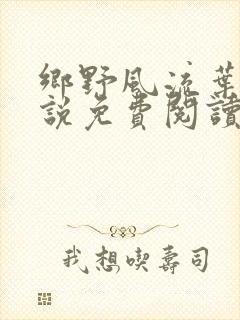 鄉野風流葉
說免費閱讀
我想喫壽司